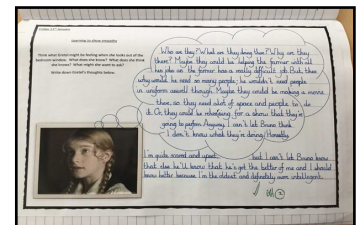 Friday 21st January
Learning to show empathy
Think what Gretel might be feeling when she looks out of the
bedroom window. What does she know? What does she think
she knows? What might she want to ask?
Write down Gretel's thoughts below.
Who are they? What are they doing there? Why are they
there? Maybe they could be helping the farmer with all
his jobs as the farmer has a really difficult job. But then
why would he need so many people, he wouldn't need people
in uniform would though. Maybe they could be making a movie
there, so they need alot of space and people to do
it. Or, they could be rehearsing for a show that they're
going to perform. Anyway, I can't let Bruno think
I don't know what they're doing. Honestly
I'm quite scared and upset but I can't let Bruno know
that else he'll know that he's got the better of me and I should
know better because I'm the oldest and definitely more intelligent.